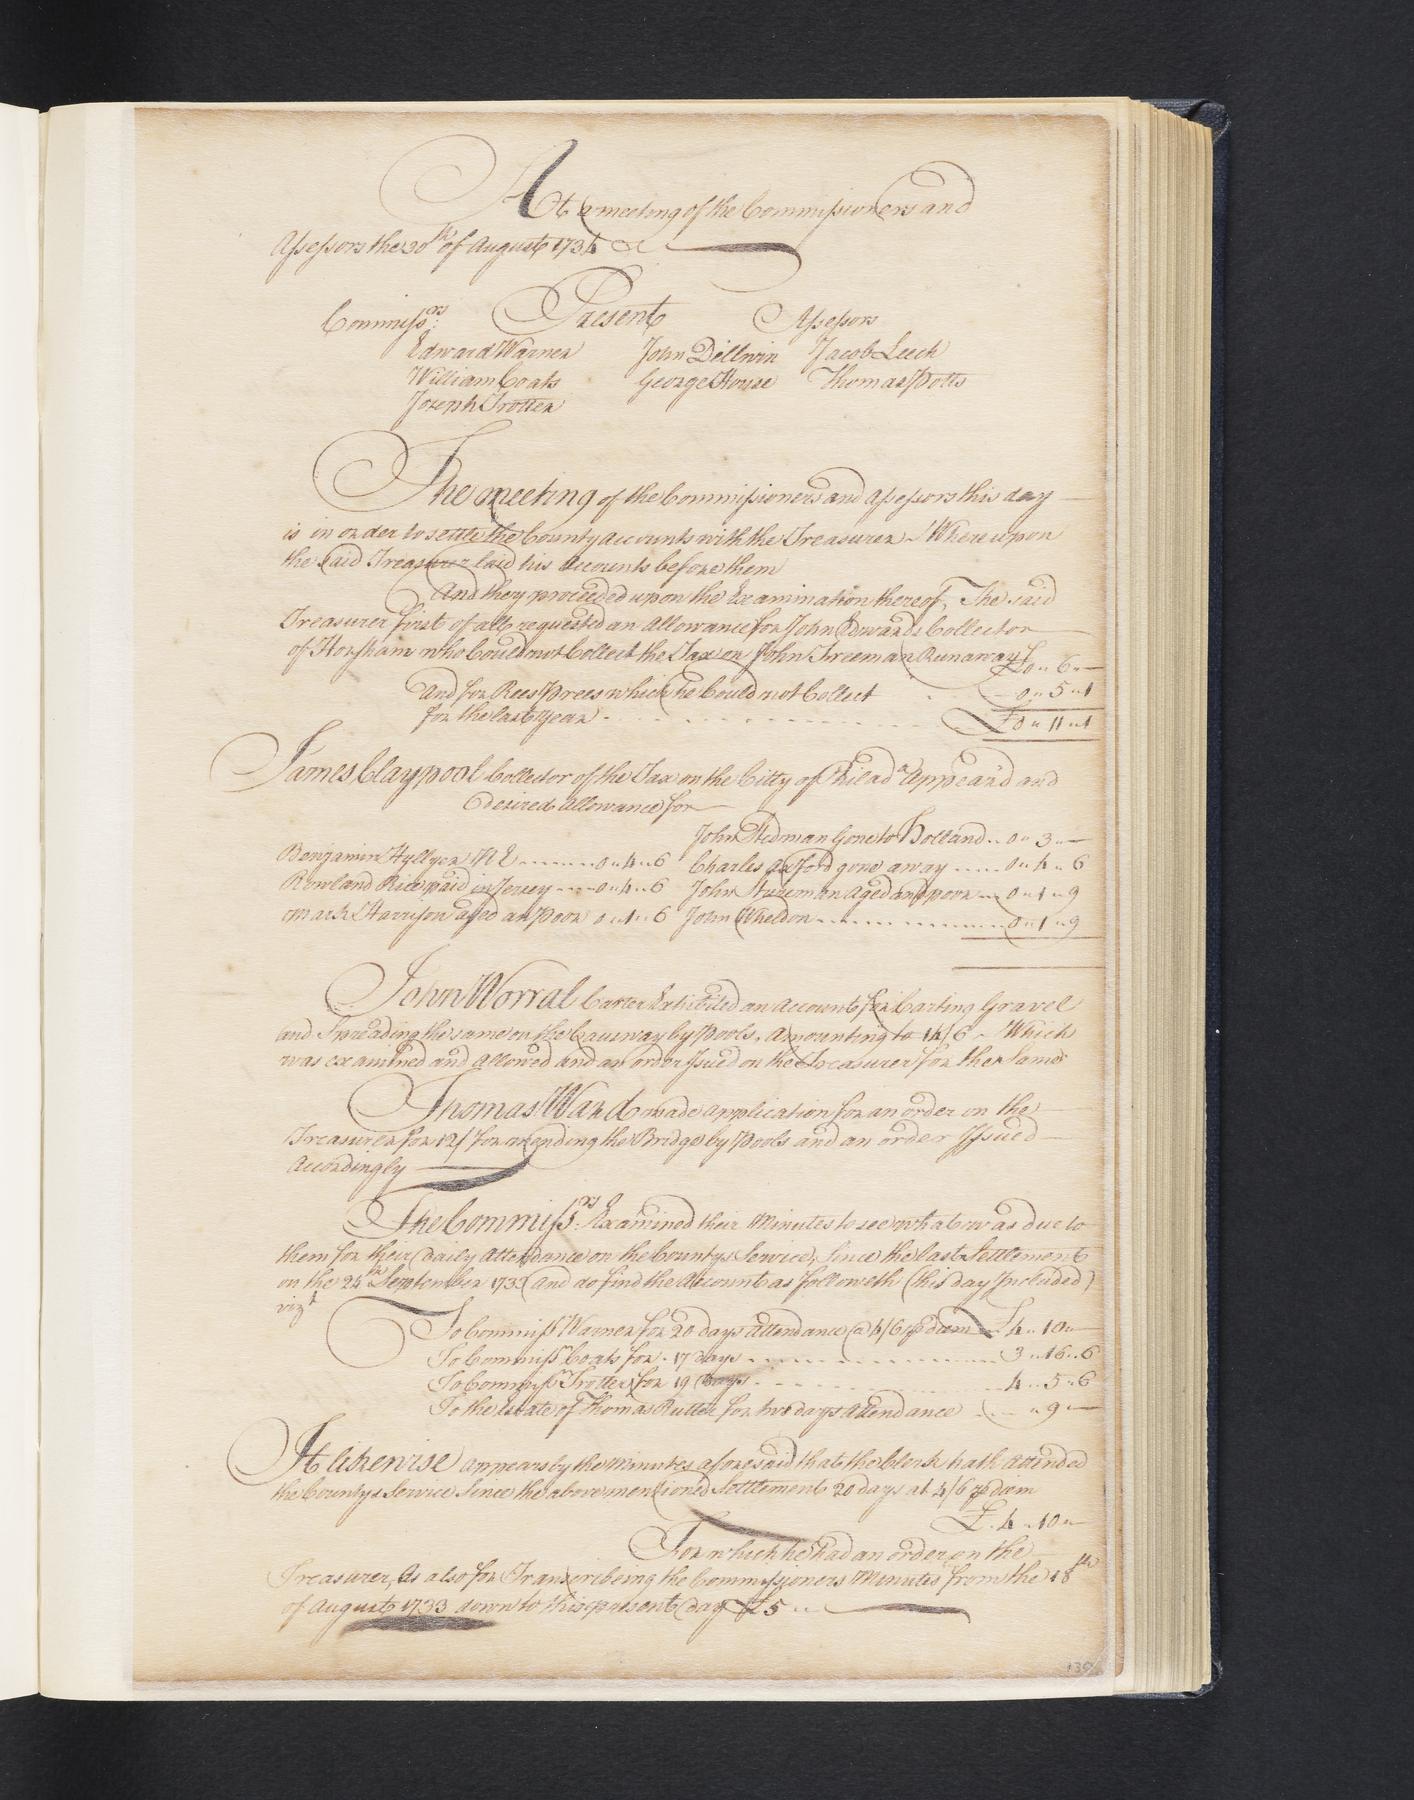 At a meeting of the Commissioners and
Assessors the 30th of August 1734 &c
Commissrs: Present Assessors
Edward Warner John Dillwin Jacob Leech
William Coats George House Thomas Potts
Joseph Trotter
The meeting of the Commissioners and Assessors this day
is in order to settle the County Accounts with the Treasurer - Whereupon
the said Treasurer laid his Accounts before them
And they proceeded upon the Examination thereof, The said
Treasurer first of all requested an Allowance for John Edwards Collector
of Horsham who Could not Collect the Tax on John Freeman Runaway £0 " 6 " —
And for Rees Prees which he Could not Collect - 0 " 5 " 1
for the last year £0 " 11 " 1
James Claypool Collector of the Tax on the Citty of Philada Appeard and
desired Allowance for
John Stedman Gone to Holland 0 " 3 " —
Benjamin Hyllyer 0 " 4 " 6 Charles Axford gone away 0 " 4 " 6
Rowland Rice paid in Jersey 0 " 4 " 6 John Stureman Aged and poor 0 " 1 " 9
Mark Harrison aged an Poor 0 " 1 " 6 John Wheldon 0 " 1 " 9
John Worral Carter Exhibited an Account for Carting Gravel
and Spreading the same on the Causway by Pools, Amounting to 14/6 - Which
was examined and Allowed and an order Isued on the Treasurer for the Same
Thomas Ward made application for an order on the
Treasurer for 12/ for mending the Bridge by Pools and an order Issued
Accordingly
The Commissrs: Examined their Minutes to see what was due to
them for their Daily Attendance on the Countys Service, Since the last Settlement
on the 24th September 1733 and do find the Account as followeth (this day Included)
vizt
To Commissr Warner for 20 days Attendance @ 4/6 p diem £4 " 10 " —
To Commissr Coats for 17 days 3 " 16 " 6
To Commissr Trotter for 19 Days 4 " 5 " 6
To the Estate of Thomas Rutter for two days Attendance — " 9 " —
It likewise appears by the Minutes aforesaid that the Clerk hath Attended
the Countys Service Since the above mentioned Settlement 20 days at 4/6 p diem
£ 4 " 10 " —
For which he had an order on the
Treasurer, As also for Transcribeing the Commissioners Minutes from the 18th
of August 1733 down to this present day £5 " "
139